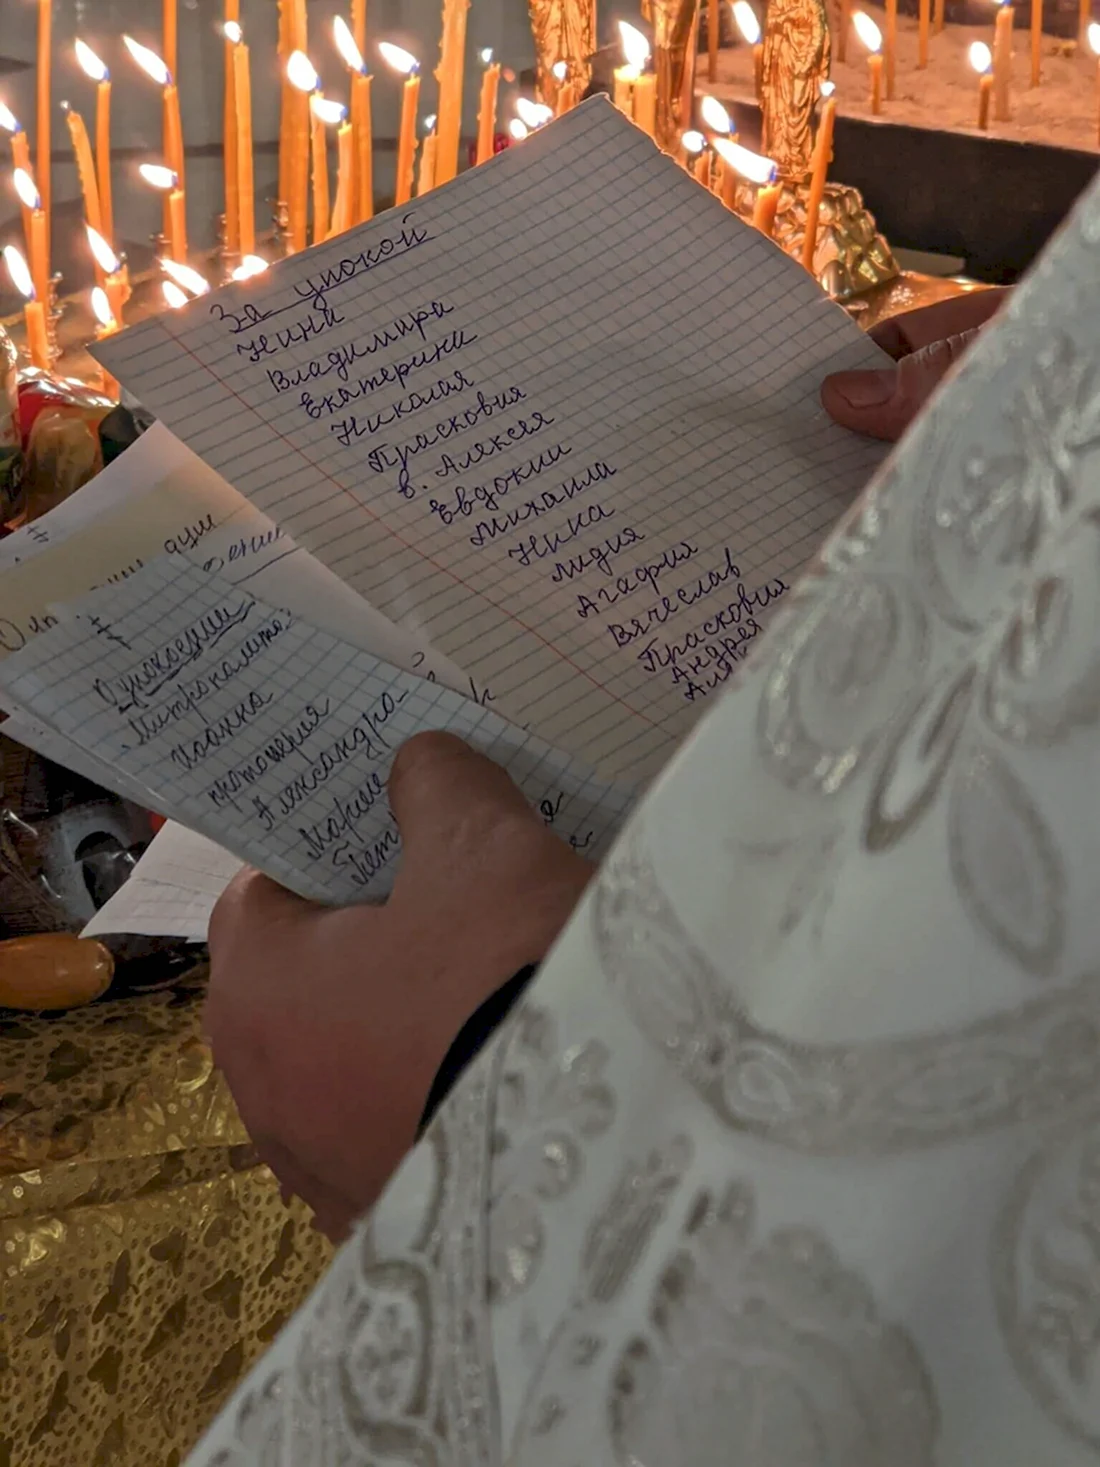 За упокой
Нини
Владимира
Екатерини
Николая
Прасковия
в. Алексея
Евдокии
Михаила
Ника
Лидия
Агафия
Вячеслав
Прасковия
Андрея
О упокоении
Митрополита
Иоанна
протоиерея
Александра
Марии